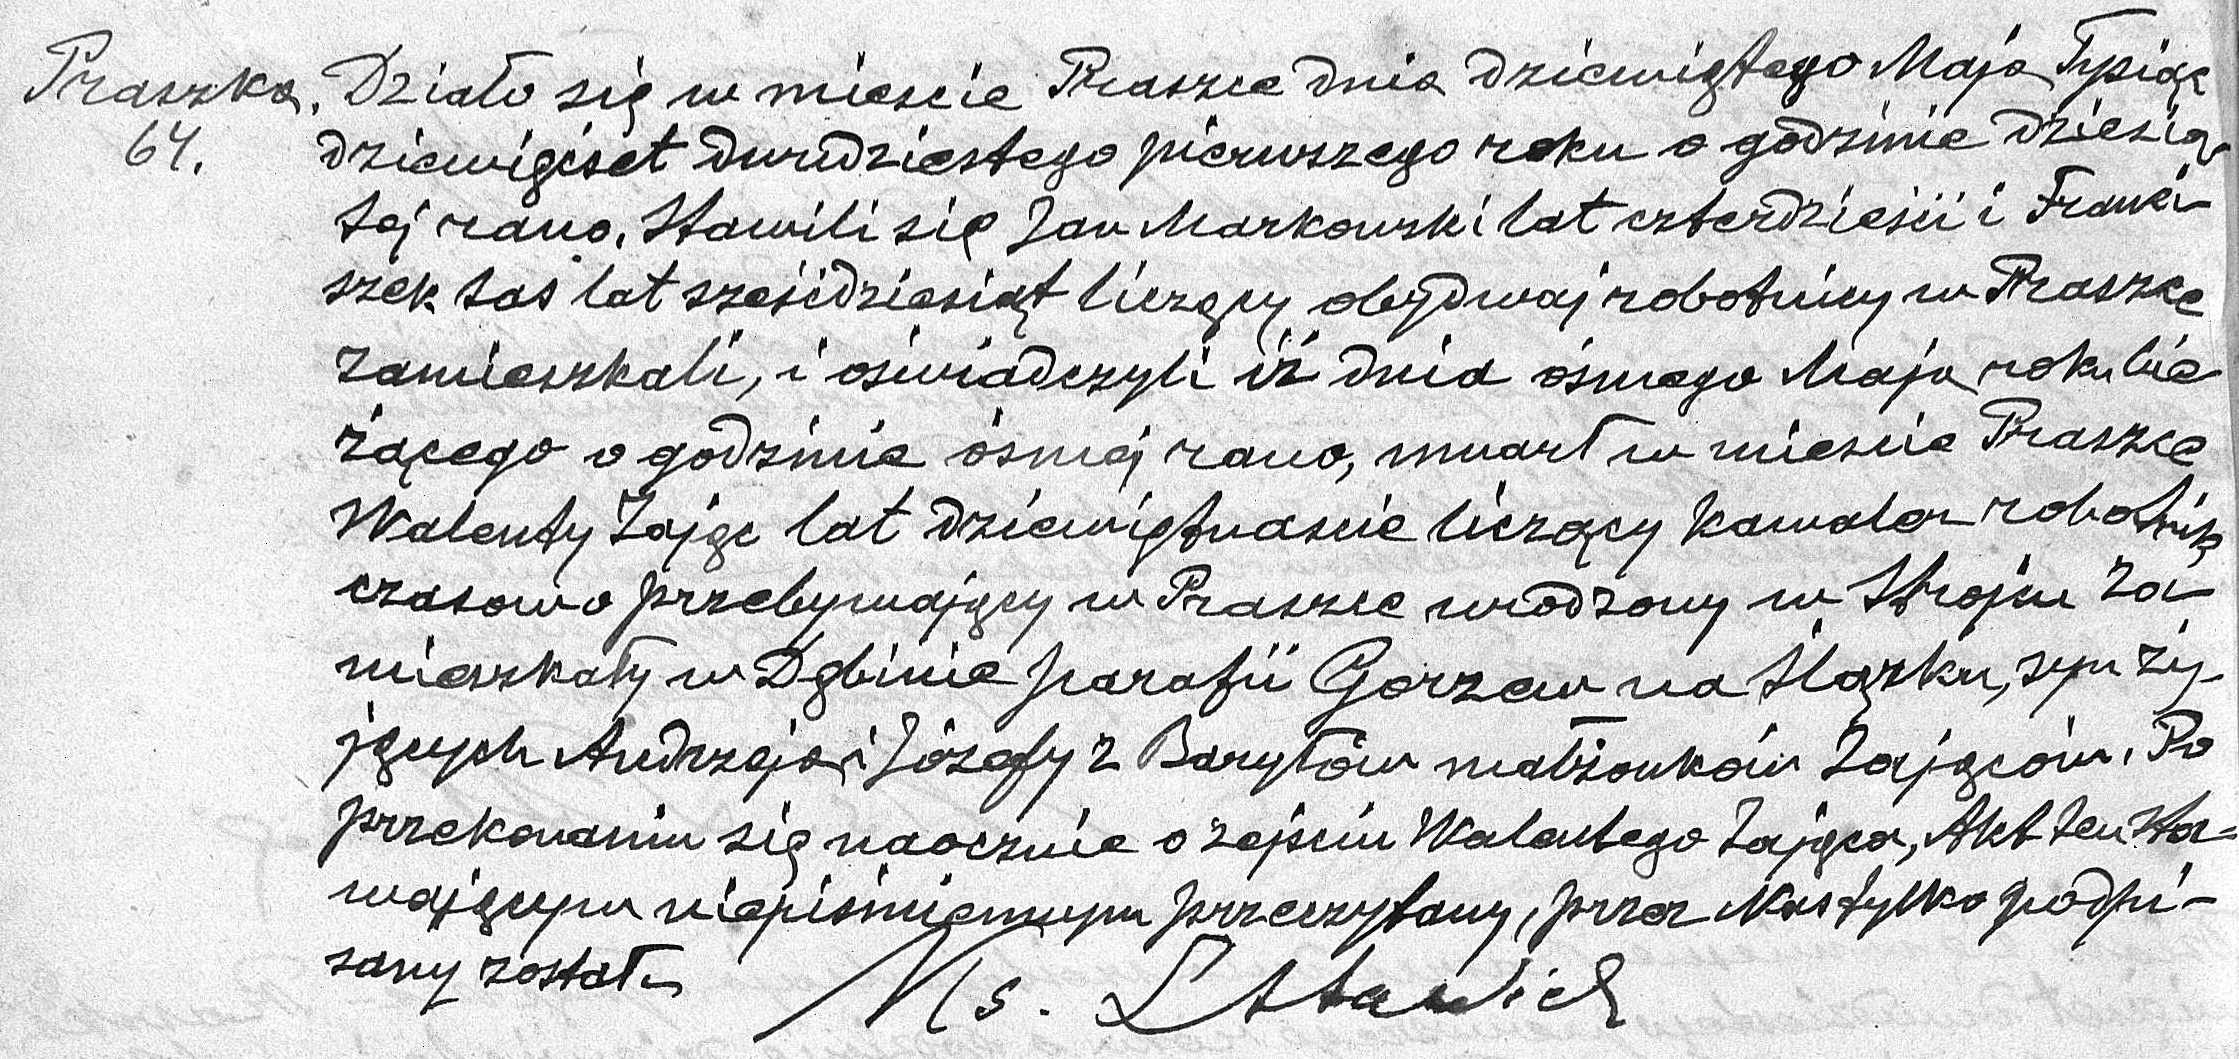 Praszka. Działo się w mieście Praszce dnia dziewiątego Maja Tysiąc
64. dziewięćset dwudziestego pierwszego roku o godzinie dziesią
tej rano. Stawili się Jan Markowski lat czterdzieści i Franci-
szek Łoś lat sześćdziesiąt liczący obydwaj robotnicy w Praszce
zamieszkali, i oświadczyli iż dnia ósmego Maja roku bie
żącego o godzinie ósmej rano, umarł w mieście Praszce
Walenty Zając lat dziewiętnaście liczący kawaler robotnik
czasowo przebywający w Praszce urodzony w Stroju za-
mieszkały w Dębinie parafii Gorzew na Ślązku, syn ży-
jących Andrzeja i Józefy z Baryłów małżonków Zająców. Po
przekonaniu się naocznie o zejściu Walentego Zająca, Akt ten sta-
wającym niepiśmiennym przeczytany, przez Nas tylko podpi-
sany został
Ks.